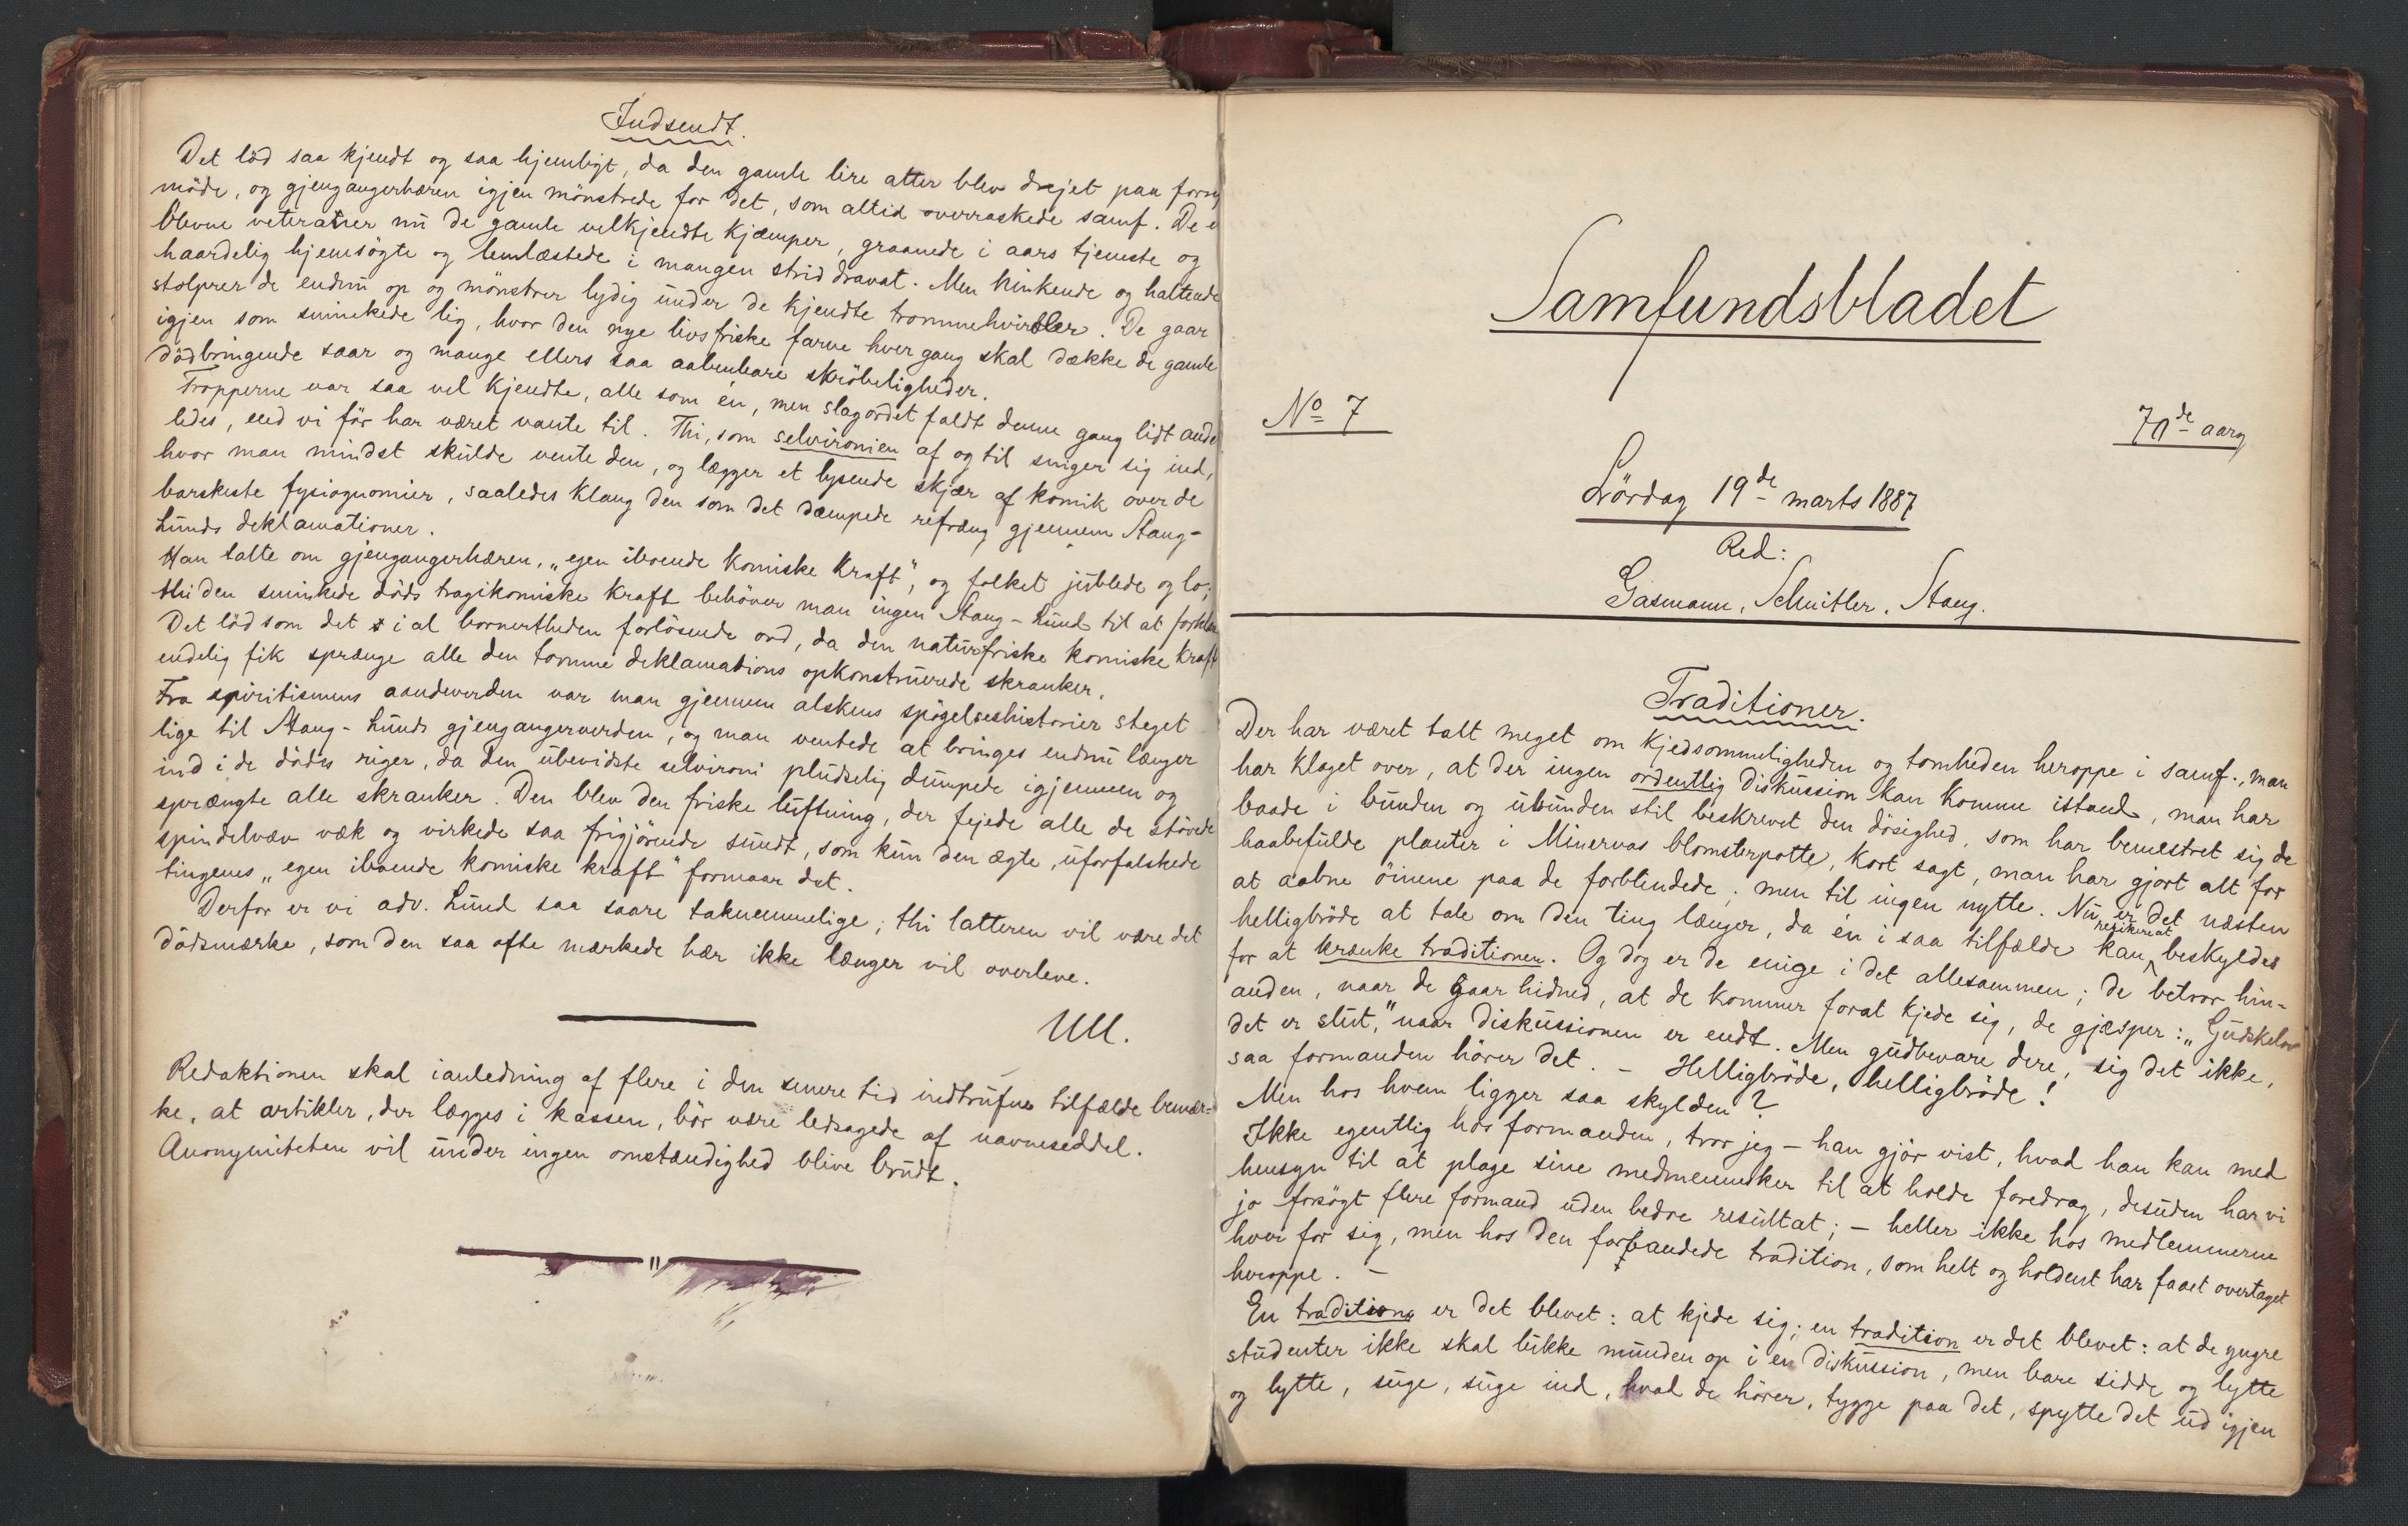 Indsendt.
Det löd saa kjendt og saa hjemligt, da den gamle lire atter blev drejet paa forrig
möde, og gjengangerhæren igjen mönstrede for det, som altid overraskede samf. De e
blevne veteraner nu de gamle velkjendte kjæmper, graanede i aars tjeneste og
haardelig hjemsögte og lemlæstede i mangen strid dravat. Men hinkende og haltende
stolprer de endnu op og mönstrer lydig under de kjendte trommehvirvler. De gaar
igjen som sminkede lig, hvor den nye livsfriske farve hver gang skal dække de gamle
dödbringende saar og mange ellers saa aabenbare skröbeligheder.
Tropperne var saa vel kjendte, alle som én, men slagordet faldt denne gang lidt ander
ledes, end vi för har været vante til. Thi, som selvironien af og til sniger sig ind,
hvor man mindst skulde vente den, og lægger et lysende skjær af komik over de
barskeste fysiognomier, saaledes klang den som det dæmpede refræng gjennem Stang-
Lunds deklamationer.
Han talte om gjengangerhæren, „egen iboende komiske kraft", og folket jublede og lo;
thi den sminkede döds tragikomiske kraft behöver man ingen Stang-Lund til at forklare
Det löd som det i al bornertheden forlösende ord, da den naturfriske komiske kraft
endelig fik sprænge alle den tomme deklamations opkonstruerede skranker.
Fra spiritismens aandeverden var man gjennem alskens spögelseshistorier steget
lige til Stang-Lunds gjengangerverden, og man ventede at bringes endnu længer
ind i de dödes riger, da den ubevidste selvironi pludselig dumpede igjennem og
sprængte alle skranker. Den blev den friske luftning, der fejede alle de stövede
spindelvæv væk og virkede saa frigjörende sundt, som kun den ægte, uforfalskede
tingenes „egen iboende komiske kraft" formaar det.
Derfor er vi adv. Lund saa saare taknemmelige; thi latteren vil være det
dödsmærke, som den saa ofte mærkede hær ikke længer vil overleve.
Ull.
Redaktionen skal ianledning af flere i den senere tid indtrufne tilfælde bemær-
ke, at artikler, der lægges i kassen, bör være ledsagede af navneseddel.
Anonymiteten vil under ingen omstændighed blive brudt.
Samfundsbladet
No 7
70de aarg
Lördag 19de marts 1887
Red:
Gasmann, Schnitler, Stang.
Traditioner.
Der har været talt meget om kjedsommeligheden og tomheden heroppe i samf., man
har klaget over, at der ingen ordentlig diskussion kan komme istand, man har
baade i bunden og ubunden stil beskrevet den dösighed, som har bemestret sig de
haabefulde planter i Minervas blomsterpotte, kort sagt, man har gjort alt for
at aabne öinene paa de forblindede; men til ingen nytte. Nu er det næsten
helligbröde at tale om den ting længer, da én i saa tilfælde kan risikere at beskyldes
for at krænke traditionen. Og dog er de enige i det allesammen; de betror hin-
anden, naar de gaar hidned, at de kommer forat kjede sig, de gjæsper: „Gudskelov
det er slut," naar diskussionen er endt. Men gudbevare dere, sig det ikke,
saa formanden hörer det. – Helligbröde, helligbröde!
Men hos hvem ligger saa skylden?
Ikke egentlig hos formanden, tror jeg – han gjör vist, hvad han kan med
hensyn til at plage sine medmennesker til at holde foredrag, desuden har vi
jo forsögt flere formænd uden bedre resultat; – heller ikke hos medlemmerne
hver for sig, men hos den forbandede tradition, som helt og holdent har faaet overtaget
heroppe. –
En tradition er det blevet: at kjede sig; en tradition er det blevet: at de yngre
studenter ikke skal lukke munden op i en diskussion, men bare sidde og lytte
og lytte, suge, suge ind, hvad de hörer, tygge paa det, spytte det ud igjen